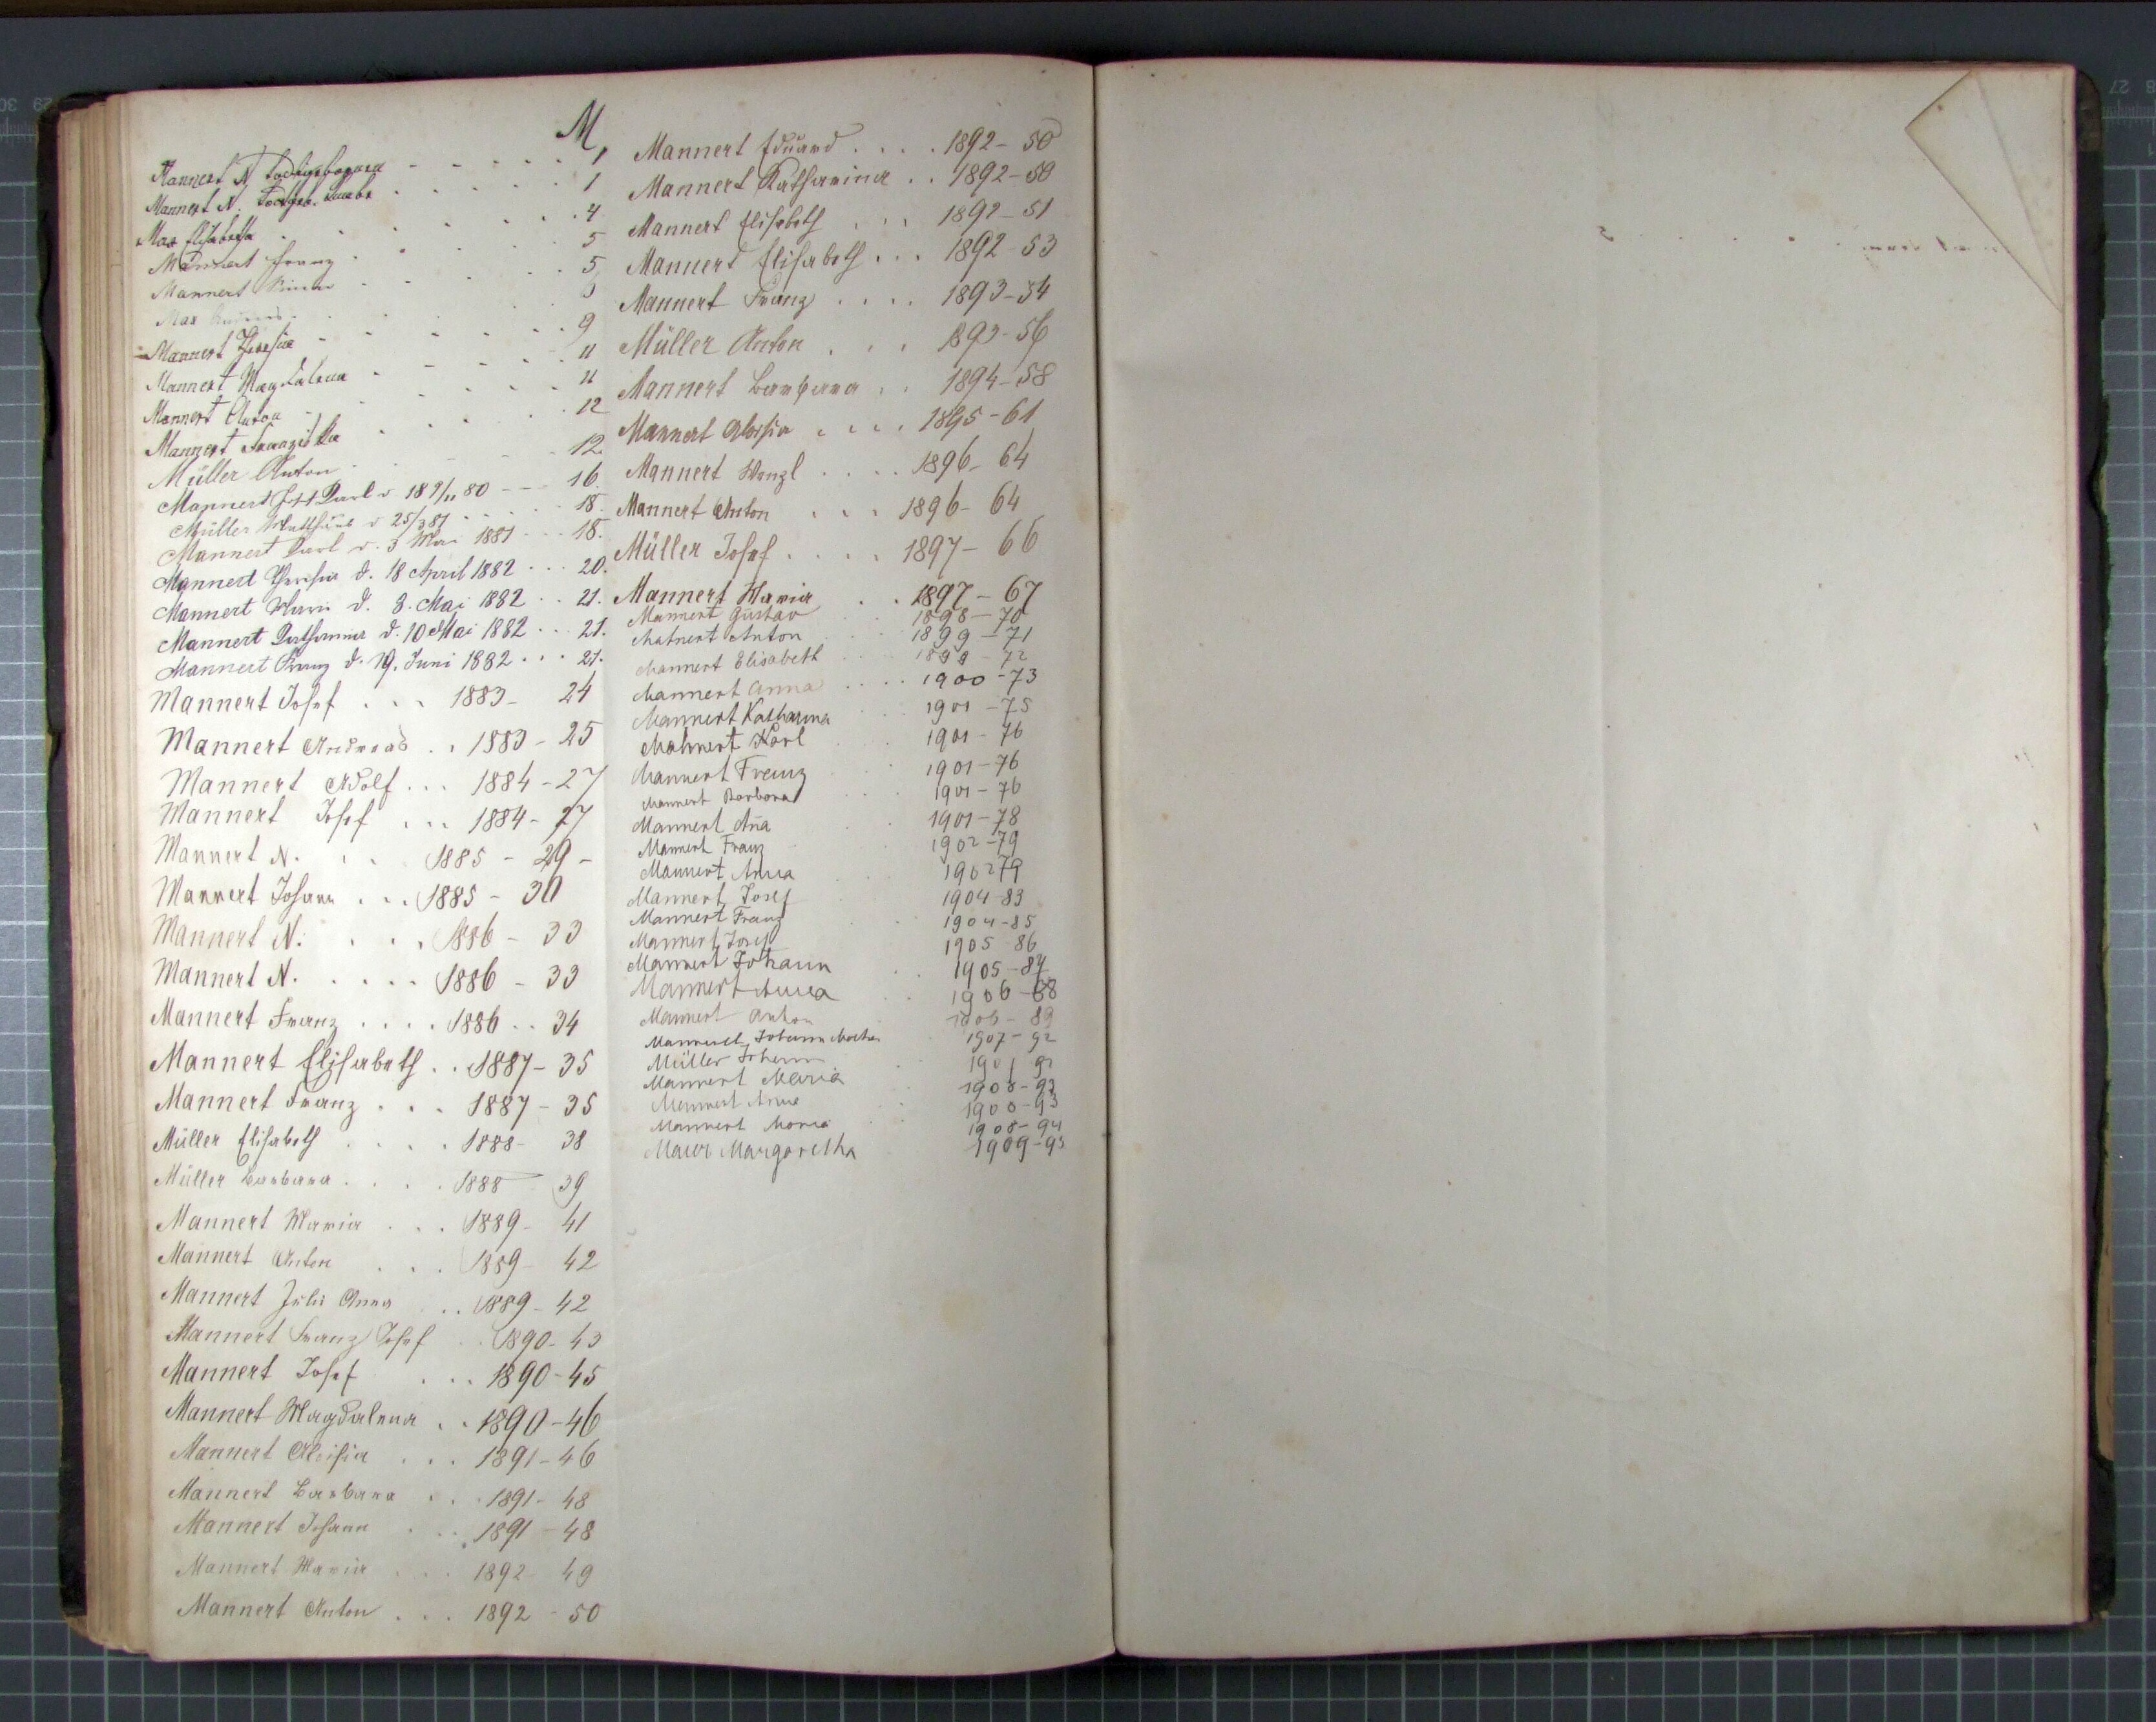 M,
Mannert N Todtgeborene - - - - - 1
Mannert N. Todtgeb. Knabe . . . . . . 1
Max Elisabetha . . . . . . 4
Mannert Franz . . . . . 5
Mannert . . . . 5
Max
Mannert Theresia - - - - - 9
Mannert Magdalena - - - - - 11
Mannert Anton - - - - 11
Mannert Franziska . . . . 12
Müller Anton - - - 12.
Mannert Karl v 18 9/11 80 - - - 16.
Müller Matthäus v 25/3 81 . . . . . 18.
Mannert Karl v. 3 Mai 1881 . . . 18.
Mannert Theresia d. 18 April 1882 . . . 20.
Mannert Marie d. 3. Mai 1882 . . 21.
Mannert Katharina d. 10 Mai 1882 . . . 21.
Mannert Franz d. 19. Juni 1882 . . . 21.
Mannert Josef . . . 1883 - 24
Mannert Andreas . . 1883 - 25
Mannert Adolf . . . 1884 - 27
Mannert Josef . . . 1884 - 27
Mannert N. . . . 1885 - 29 -
Mannert Johann . . . 1885 - 30
Mannert N. . . . 1886 - 33
Mannert N. . . . . . 1886 - 33
Mannert Franz . . . . 1886 . . 34
Mannert Elisabeth . . 1887 - 35
Mannert Franz . . . 1887 - 35
Müller Elisabeth . . . . 1888 - 38
Müller Barbara . . . . 1888 - 39
Mannert Maria . . . 1889 - 41
Mannert Anton . . . 1889 - 42
Mannert Julie Anna . . 1889 - 42
Mannert Franz Josef . . 1890 - 43
Mannert Josef . . . 1890 - 45
Mannert Magdalena . . 1890 - 46
Mannert Aloisia . . . 1891 - 46
Mannert Barbara . . . 1891 - 48
Mannert Johann . . . 1891 - 48
Mannert Maria . . . 1892 - 49
Mannert Anton . . . 1892 - 50
Mannert Eduard . . . . 1892 - 50
Mannert Katharina . . 1892 - 50
Mannert Elisabeth . . . 1892 - 51
Mannert Elisabeth . . . 1892 - 53
Mannert Franz . . . . 1893 - 54
Müller Anton . . . 1893 - 56
Mannert Barbara . . 1894 - 58
Mannert Aloisia . . . . 1895 - 61
Mannert Wenzl . . . . 1896 - 64
Mannert Anton . . . 1896 - 64
Müller Josef . . . . 1897 - 66
Mannert Maria . . 1897 - 67
Mannert Gustav . . 1898 - 70
Mannert Anton . . 1899 - 71
Mannert Elisabeth . . . 1899 - 72
Mannert Anna . . . . 1900 - 73
Mannert Katharina . . 1901 - 75
Mannert Karl . . 1901 - 76
Mannert Franz . . 1901 - 76
Mannert Barbara . . . 1901 - 76
Mannert Aña . . 1901 - 78
Mannert Franz 1902 - 79
Mannert Anna . . 1902 79
Mannert Josef . . 1904 - 83
Mannert Franz . . 1904 - 85
Mannert Josef 1905 - 86
Mannert Johann . . 1905 - 87
Mannert Anna . . 1906 - 88
Mannert Anton 1906 - 89
Mannert Johann 1907 - 92
Müller Johann 1907 92
Mannert Maria . . 1908 - 93
Mannert Anna . . 1908 - 93
Mannert Maria . . 1908 - 94
Maier Margaretha 1909 - 95